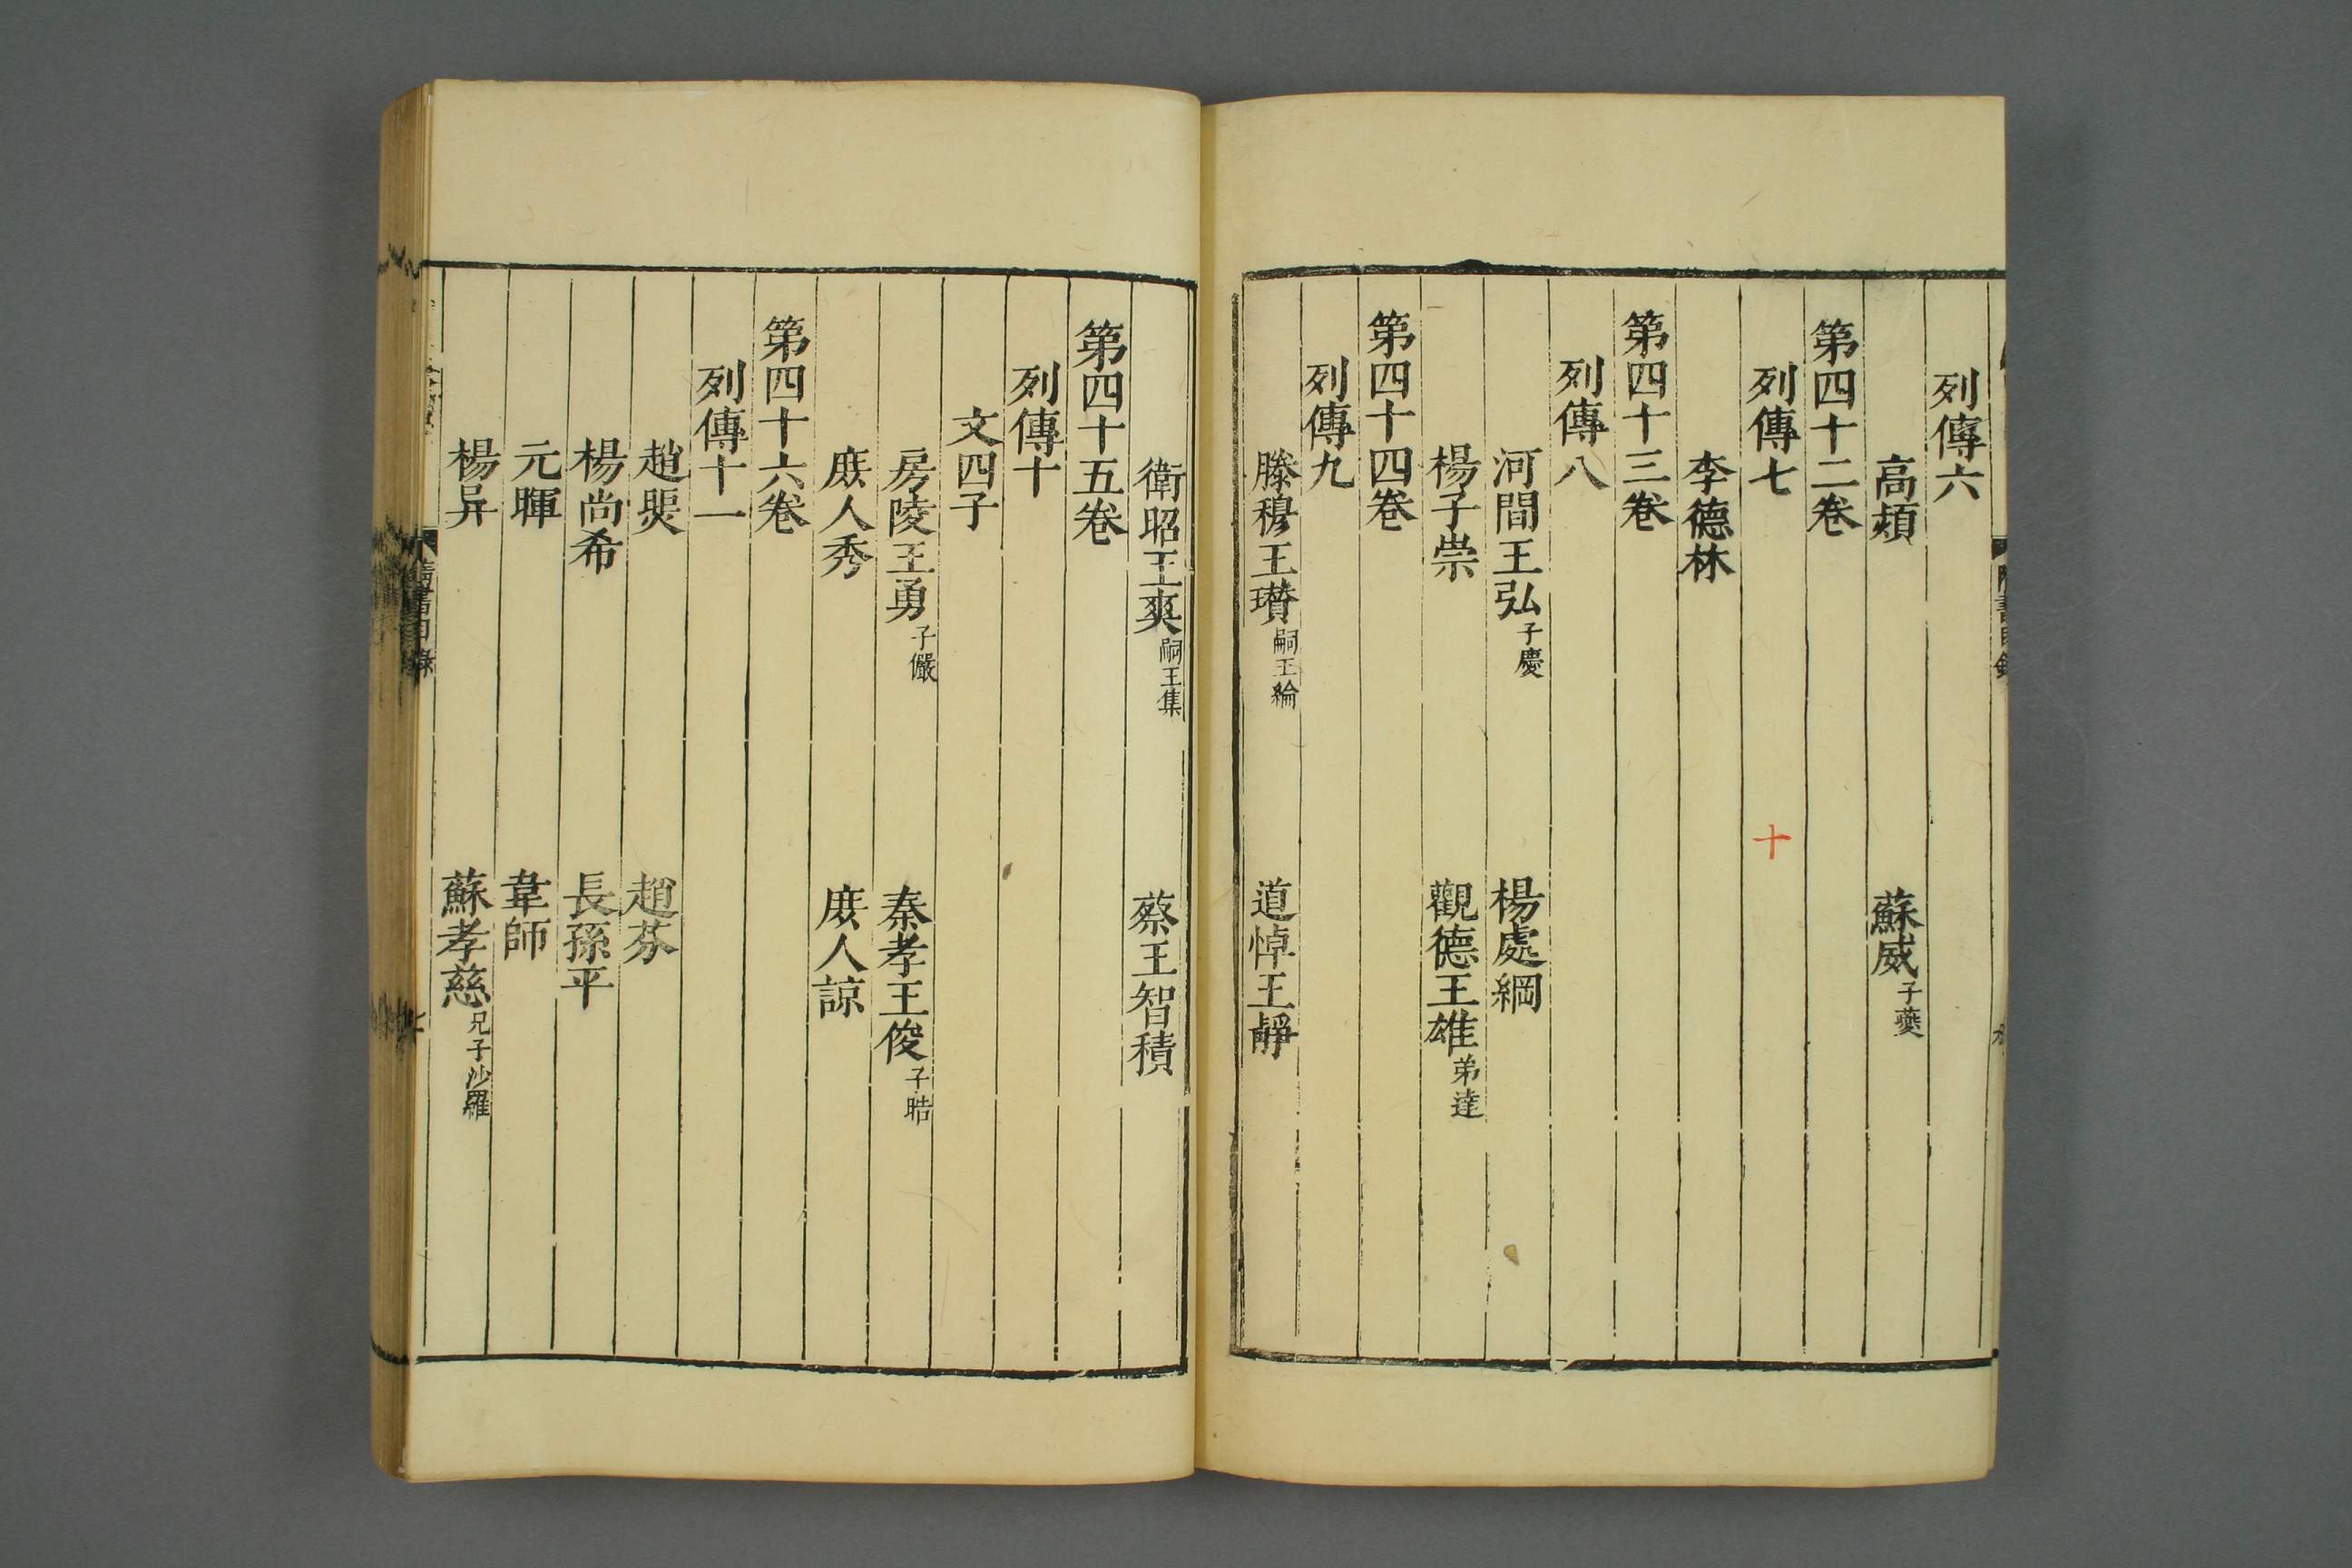 列傳六
高熲 蘇威子夔
第四十二卷
列傳七
李德林
十
第四十三卷
列傳八
河間王弘子慶 楊處綱
楊子崇 觀德王雄弟達
第四十四卷
列傳九
滕穆王瓚嗣王綸 道悼王靜
衛昭王爽嗣王集 蔡王智積
第四十五卷
列傳十
文四子
房陵王勇子儼 秦孝王俊子晧
庶人秀 庶人諒
第四十六卷
列傳十一
趙煚 趙芬
楊尚希 長孫平
元暉 韋師
楊异 蘇孝慈兄子沙羅
隋書目錄